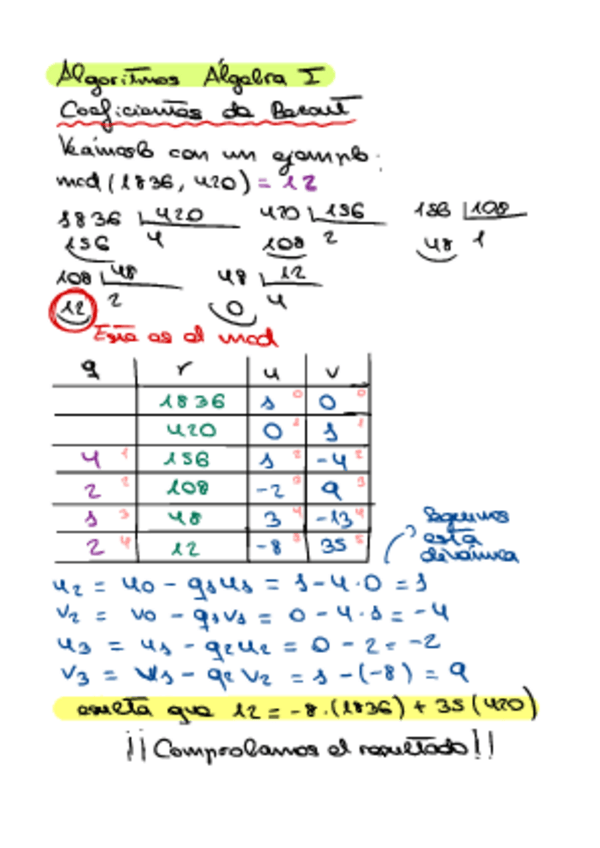 Algoritmos Álgebra I
Coeficientes de Bezout
Veámoslo con un ejemplo:
mcd (1836, 420) = 12
1836 420 420 156 156 108
156 4 108 2 48 1
108 48 48 12
12 2 0 4
Este es el mcd
q r u v
1836 1 0 0 0
420 0 1 1 1
4 1 156 1 2 -4 2
2 2 108 -2 3 9 3
1 3 48 3 4 -13 4
2 4 12 -8 5 35 5
Seguimos
esta
dinámica
u2 = u0 - q1u1 = 1 - 4·0 = 1
v2 = v0 - q1v1 = 0 - 4·1 = -4
u3 = u1 - q2u2 = 0 - 2 = -2
v3 = v1 - q2v2 = 1 - (-8) = 9
resulta que 12 = -8·(1836) + 35(420)
¡¡Comprobamos el resultado!!